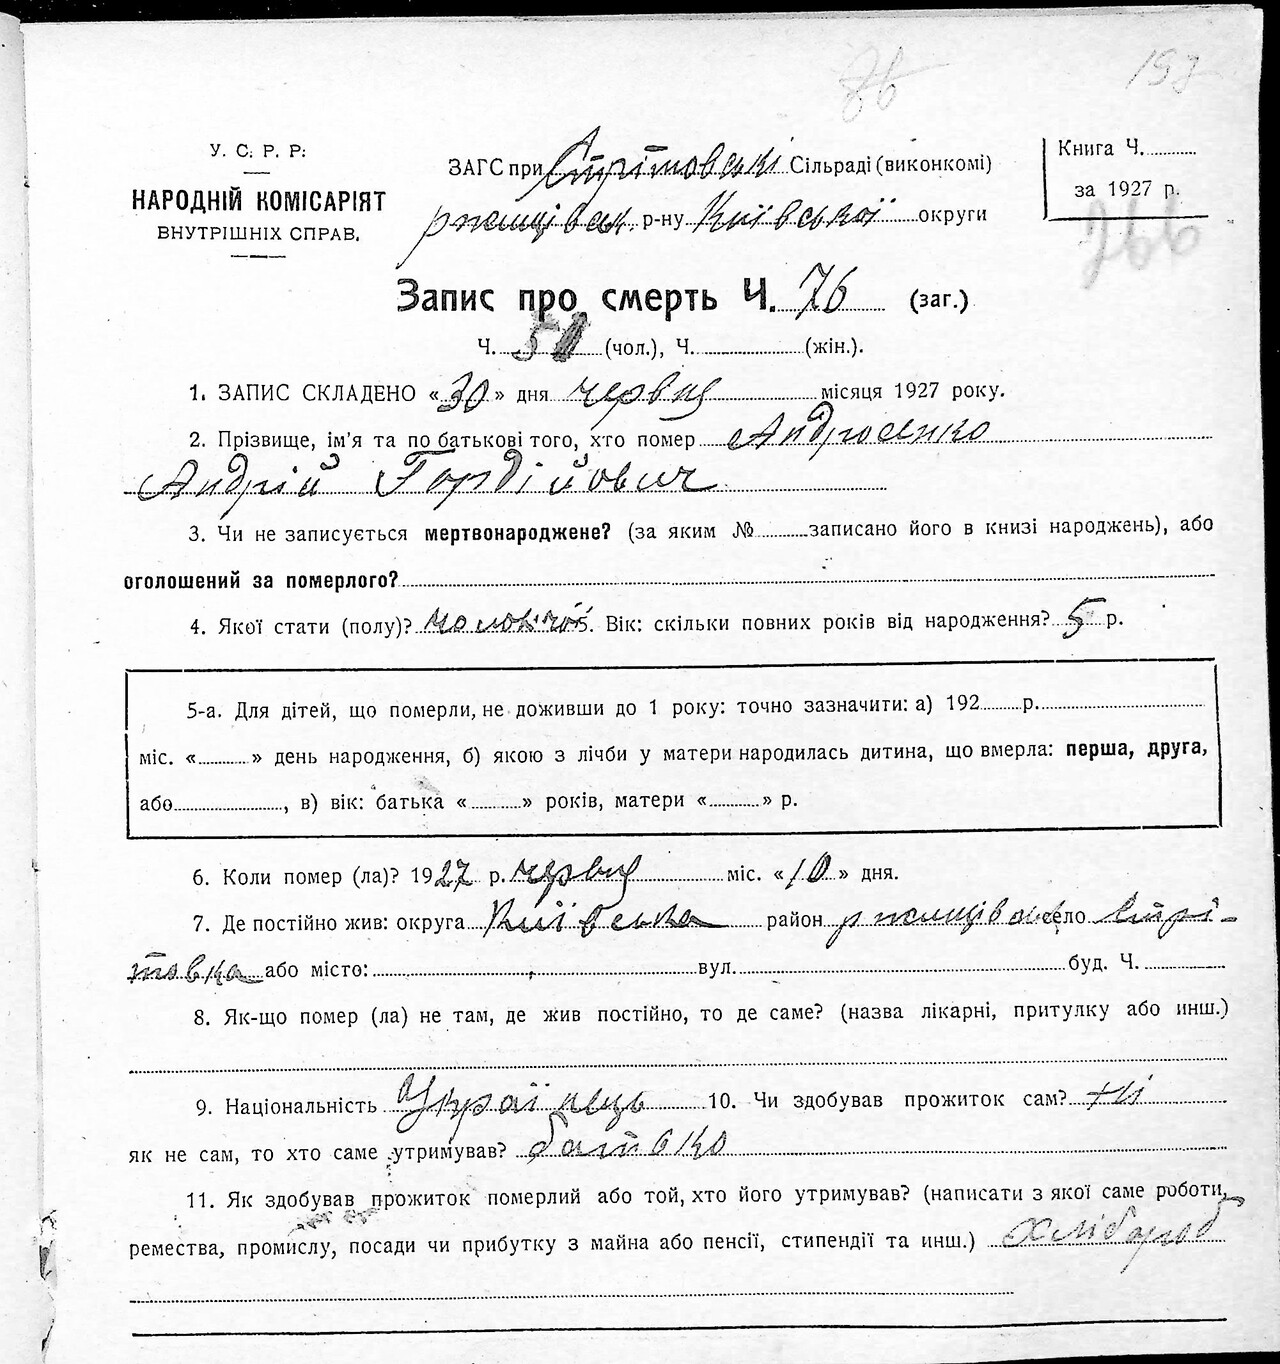 193
76
У. С. Р. Р.
НАРОДНІЙ КОМІСАРІЯТ
ВНУТРІШНІХ СПРАВ.
ЗАГС при Стрітовські Сільраді (виконкомі)
ржищівськ. р-ну Київської округи
Книга Ч.
за 1927 р.
266
Запис про смерть Ч. 76 (заг.)
Ч. 51 (чол.), Ч. (жін.).
1. ЗАПИС СКЛАДЕНО «30» дня червця місяця 1927 року.
2. Прізвище, ім'я та по батькові того, хто помер Андросенко
Андрій Гордійович
3. Чи не записується мертвонароджене? (за яким № записано його в книзі народжень), або
оголошений за померлого?
4. Якої стати (полу)? чоловічої 5. Вік: скільки повних років від народження? 5 р.
5-а. Для дітей, що померли, не доживши до 1 року: точно зазначити: а) 192 р.
міс. « » день народження, б) якою з лічби у матери народилась дитина, що вмерла: перша, друга,
або , в) вік: батька « » років, матери « » р.
6. Коли помер (ла)? 1927 р. червця міс. «10» дня.
7. Де постійно жив: округа Київська район ржищівськ село Стрі-
товка або місто: вул. буд. Ч.
8. Як-що помер (ла) не там, де жив постійно, то де саме? (назва лікарні, притулку або инш.)
9. Національність Українець 10. Чи здобував прожиток сам? Ні
як не сам, то хто саме утримував? батько
11. Як здобував прожиток померлий або той, хто його утримував? (написати з якої саме роботи,
ремества, промислу, посади чи прибутку з майна або пенсії, стипендії та инш.) Хлібороб